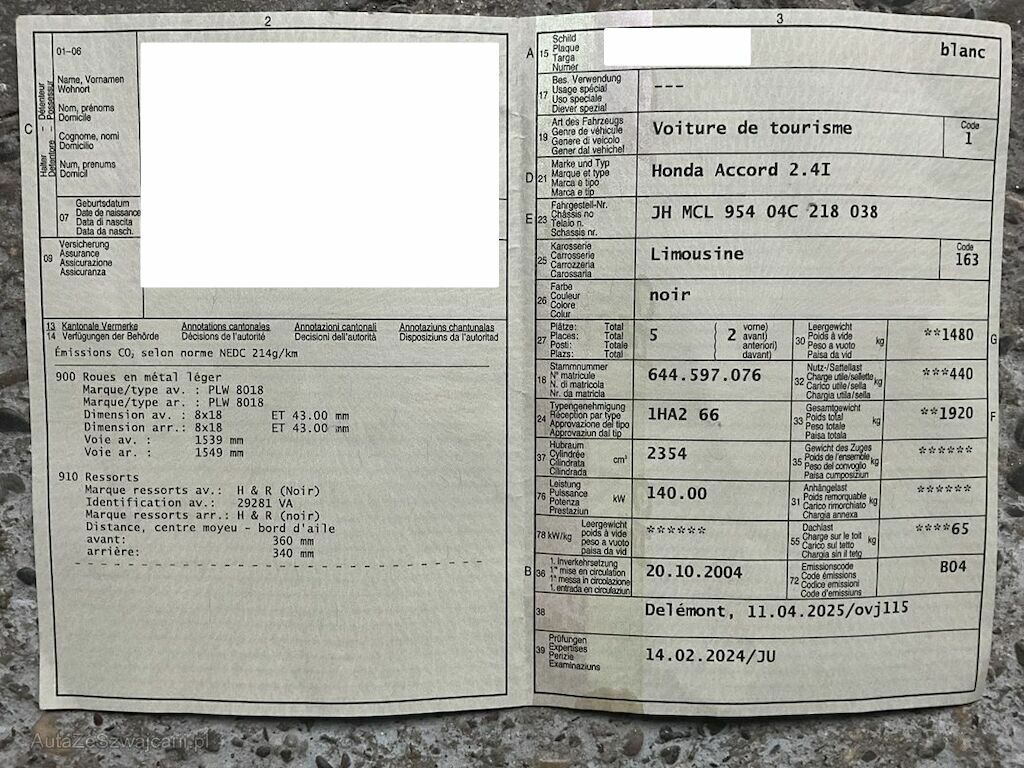 2
01-06
C
Halter - Détenteur
Detentore - Possessur
Name, Vornamen
Wohnort
Nom, prénoms
Domicile
Cognome, nomi
Domicilio
Num, prenums
Domicil
07
Geburtsdatum
Date de naissance
Data di nascita
Data da nasch.
09
Versicherung
Assurance
Assicurazione
Assicuranza
13 Kantonale Vermerke Annotations cantonales Annotazioni cantonali Annotaziuns chantunalas
14 Verfügungen der Behörde Décisions de l'autorité Decisioni dell'autorità Disposiziuns da l'autoritad
Émissions CO₂ selon norme NEDC 214g/km
900 Roues en métal léger
Marque/type av. : PLW 8018
Marque/type ar. : PLW 8018
Dimension av. : 8x18 ET 43.00 mm
Dimension arr.: 8x18 ET 43.00 mm
Voie av. : 1539 mm
Voie ar. : 1549 mm
910 Ressorts
Marque ressorts av.: H & R (Noir)
Identification av.: 29281 VA
Marque ressorts arr.: H & R (noir)
Distance, centre moyeu - bord d'aile
avant: 360 mm
arrière: 340 mm
3
A 15
Schild
Plaque
Targa
Numer
blanc
17
Bes. Verwendung
Usage spécial
Uso speciale
Diever spezial
---
19
Art des Fahrzeugs
Genre de véhicule
Genere di veicolo
Gener dal vehichel
Voiture de tourisme
Code
1
D 21
Marke und Typ
Marque et type
Marca e tipo
Marca e tip
Honda Accord 2.4I
E 23
Fahrgestell-Nr.
Châssis no
Telaio n.
Schassis nr.
JH MCL 954 04C 218 038
25
Karosserie
Carrosserie
Carrozzeria
Carossaria
Limousine
Code
163
26
Farbe
Couleur
Colore
Colur
noir
27
Plätze: Total
Places: Total
Posti: Totale
Plazs: Total
5
2
vorne)
avant)
anteriori)
davant)
30
Leergewicht
Poids à vide
Peso a vuoto
Paisa da vid
kg
**1480
G
18
Stammnummer
N° matricule
N. di matricola
Nr. da matricla
644.597.076
32
Nutz-/Sattellast
Charge utile/sellette
Carico utile/sella
Chargia utila/sella
kg
***440
24
Typengenehmigung
Réception par type
Approvazione del tipo
Approvaziun dal tip
1HA2 66
33
Gesamtgewicht
Poids total
Peso totale
Paisa totala
kg
**1920
F
37
Hubraum
Cylindrée
Cilindrata
Cilindrada
cm³
2354
35
Gewicht des Zuges
Poids de l'ensemble
Peso del convoglio
Paisa cumposiziun
kg
******
76
Leistung
Puissance
Potenza
Prestaziun
kW
140.00
31
Anhängelast
Poids remorquable
Carico rimorchiato
Chargia annexa
kg
******
78 kW/kg
Leergewicht
poids à vide
peso a vuoto
paisa da vid
******
55
Dachlast
Charge sur le toit
Carico sul tetto
Chargia sin il tetg
kg
****65
B 36
1. Inverkehrsetzung
1re mise en circulation
1a messa in circolazione
1. entrada en circulaziun
20.10.2004
72
Emissionscode
Code émissions
Codice emissioni
Code d'emissiuns
B04
38
Delémont, 11.04.2025/ovj115
39
Prüfungen
Expertises
Perizie
Examinaziuns
14.02.2024/JU
AutaZeSzwajcarii.pl